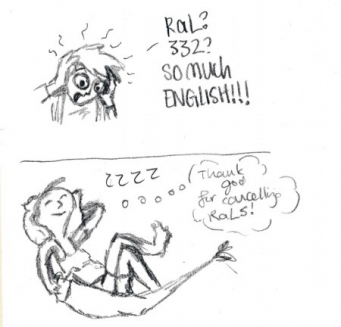 RaL?
332?
SO MUCH
ENGLISH!!!
ZZZZ
Thank
god
for cancelling
RaLS!